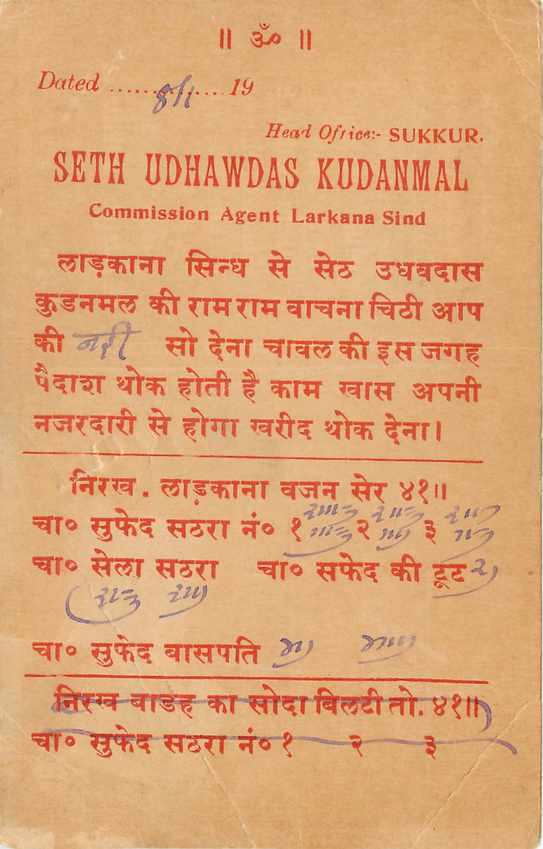 ॥ ॐ ॥
Dated .... 8/1 .... 19
Head Office:- SUKKUR.
SETH UDHAWDAS KUDANMAL
Commission Agent Larkana Sind
लाड़काना सिन्ध से सेठ उधवदास
कुडनमल की राम राम वाचना चिठी आप
की नही सो देना चावल की इस जगह
पैदाश थोक होती है काम खास अपनी
नजरदारी से होगा खरीद थोक देना।
निरख. लाड़काना वजन सेर ४१॥
चा० सुफेद सठरा नं० १ २ ३
चा० सेला सठरा चा० सफेद की टूट
चा० सुफेद वासपति
निरख बाडह का सोदा बिलटी तो. ४१॥
चा० सुफेद सठरा नं० १ २ ३